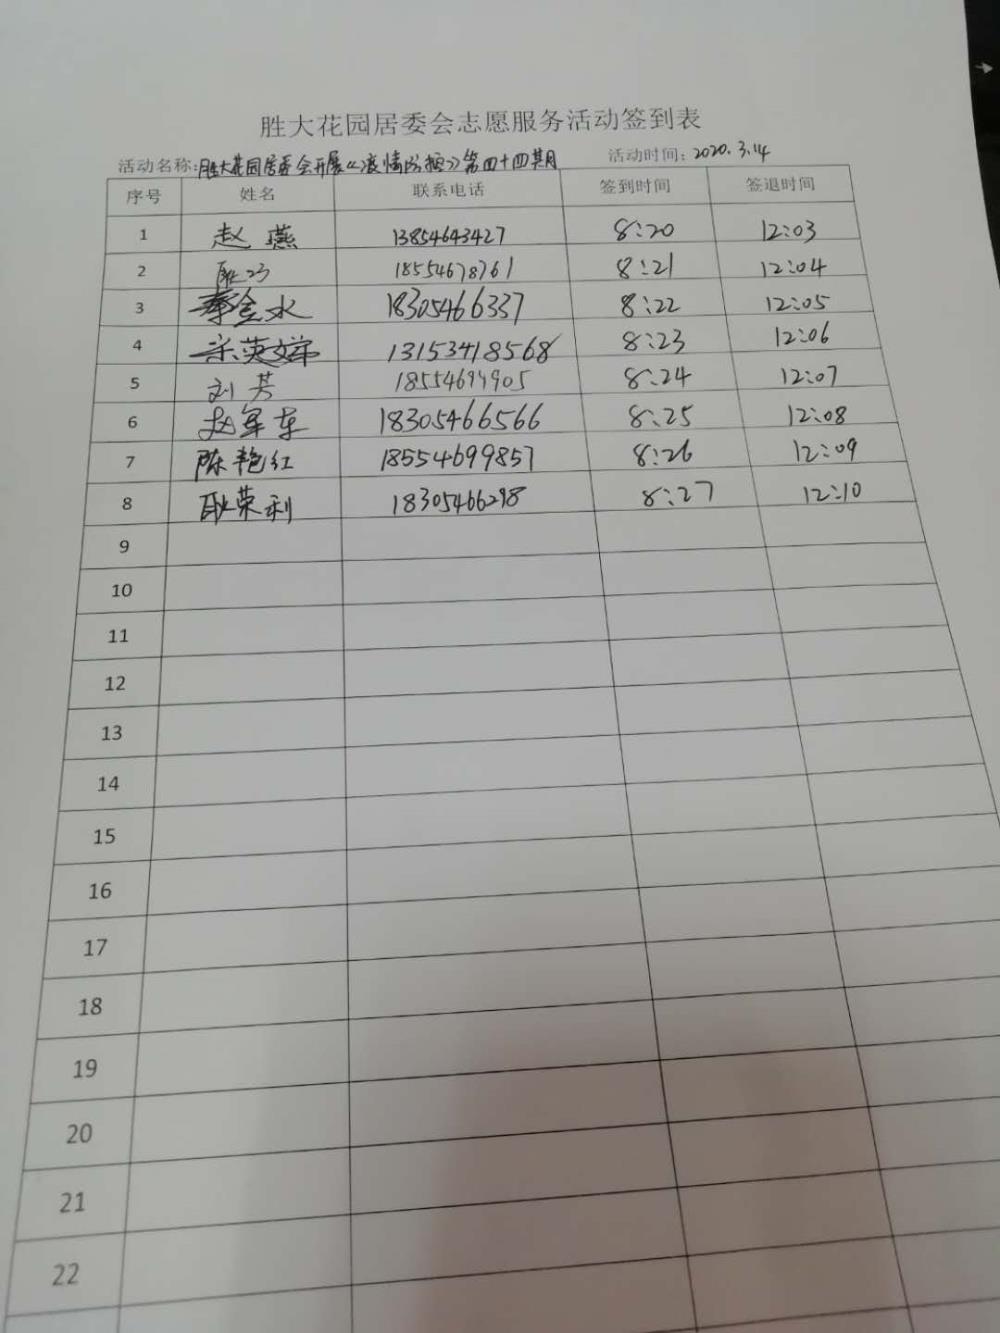 胜大花园居委会志愿服务活动签到表
活动名称:胜大花园居委会开展《疫情防控》第四十四期 活动时间:2020.3.14
序号 姓名 联系电话 签到时间 签退时间
1 赵燕 13854643427 8:20 12:03
2 18554678761 8:21 12:04
3 秦金水 18305466337 8:22 12:05
4 宋英娣 13153418568 8:23 12:06
5 刘芳 8:24 12:07
6 赵军东 18305466566 8:25 12:08
7 陈艳红 18554699857 8:26 12:09
8 耿荣利 18305466298 8:27 12:10
9
10
11
12
13
14
15
16
17
18
19
20
21
22